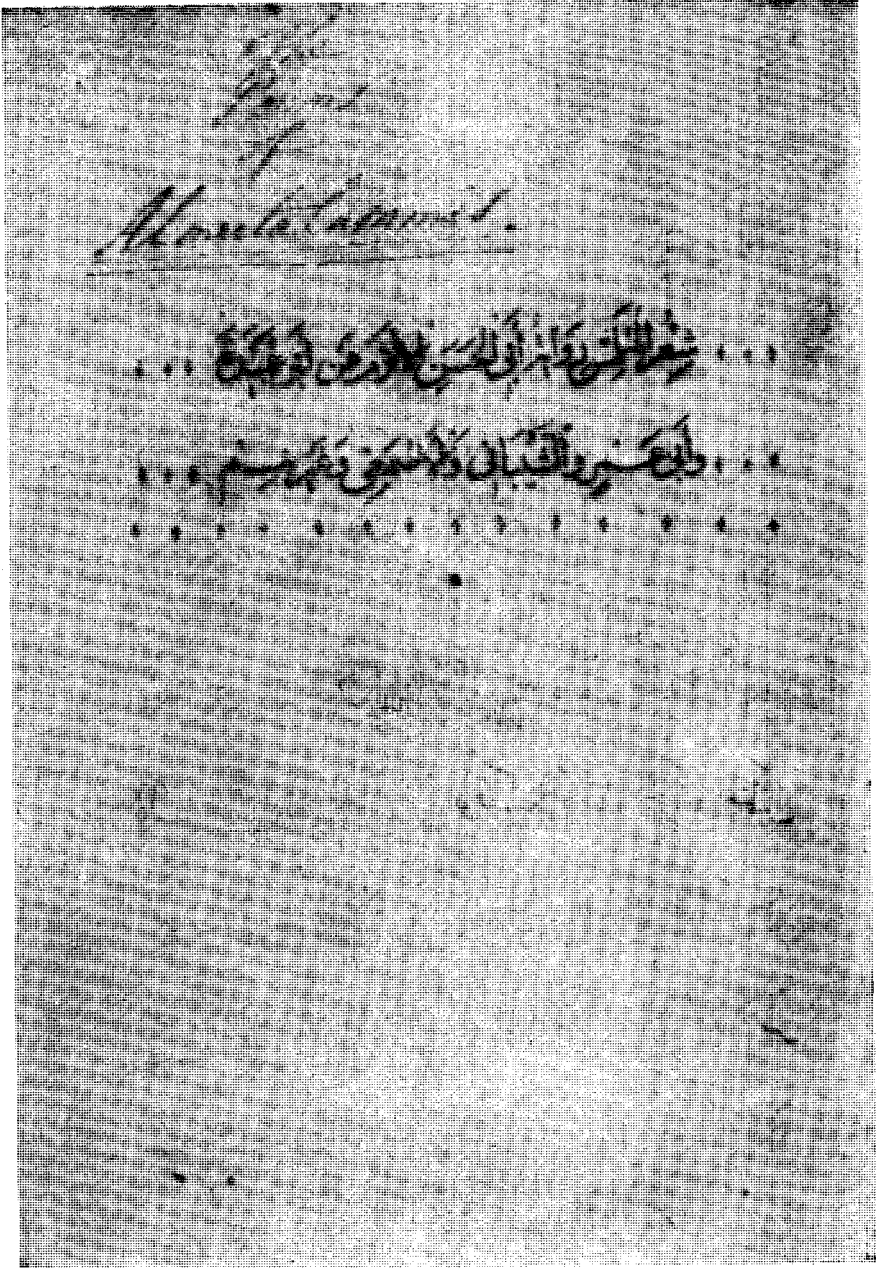 The
Poems
of
Almutalammis.
... شِعْرُ المُتَلَمِّسِ رِوَايَةُ أَبِي الحَسَنِ الأَثْرَمِ عَن أَبِي عُبَيْدَةَ ...
... وأَبِي عَمْرٍو الشَّيْبَانِي وَالأَصْمَعِي وَغَيْرِهِمْ ...